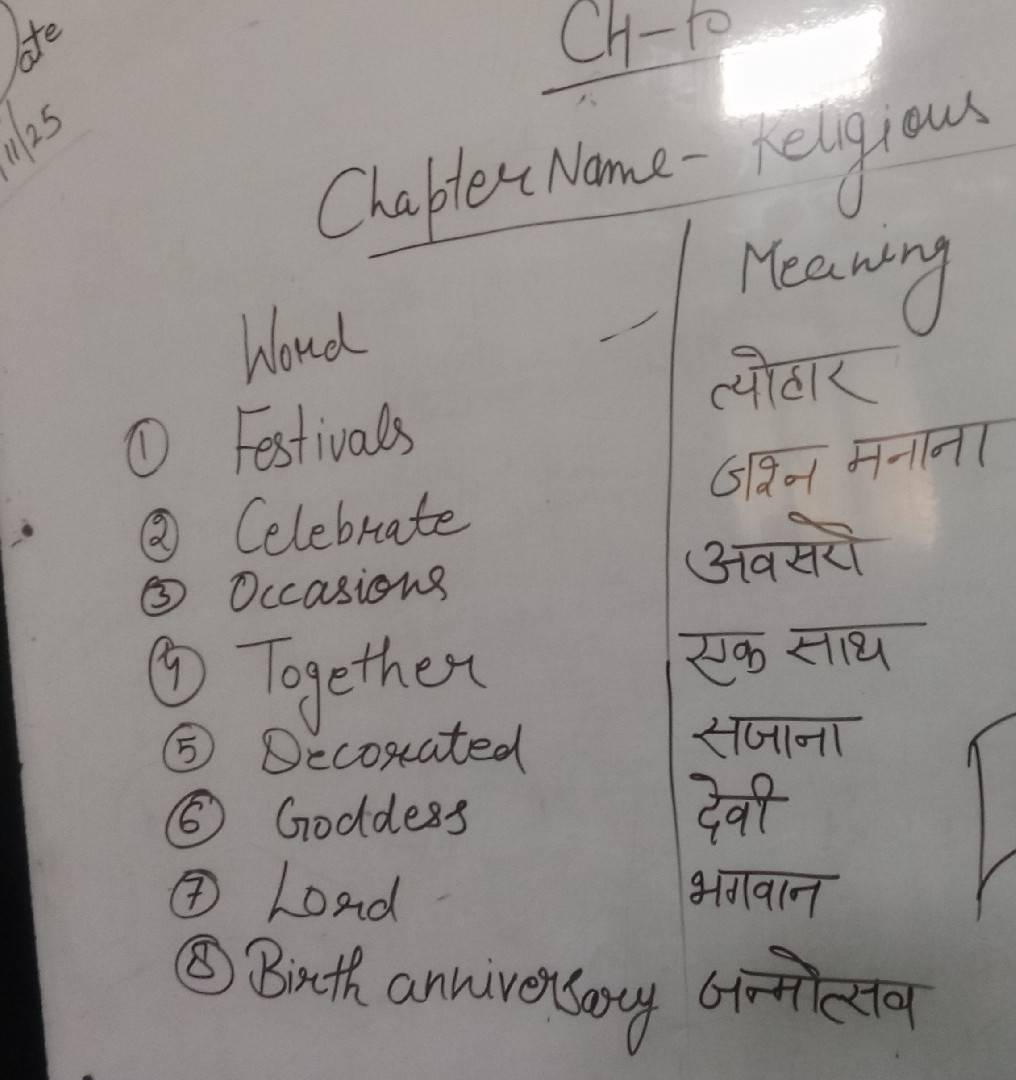 Date
11/25
CH-10
Chapter Name - Religious
Word Meaning
① Festivals त्योहार
② Celebrate जश्न मनाना
③ Occasions अवसरो
④ Together एक साथ
⑤ Decorated सजाना
⑥ Goddess देवी
⑦ Lord भगवान
⑧ Birth anniversary जन्मोत्सव